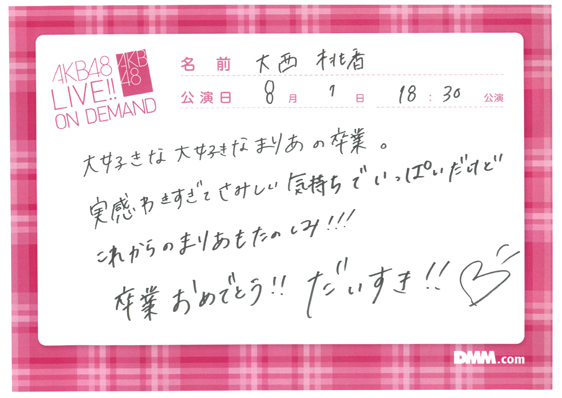 AKB48
LIVE!!
ON DEMAND
AKB
48
名前 大西桃香
公演日 8月1日 18:30公演
大好きな大好きなまりあの卒業。
実感わきすぎてさみしい気持ちでいっぱいだけど
これからのまりあもたのしみ!!!
卒業おめでとう!! だいすき!!
DMM.com